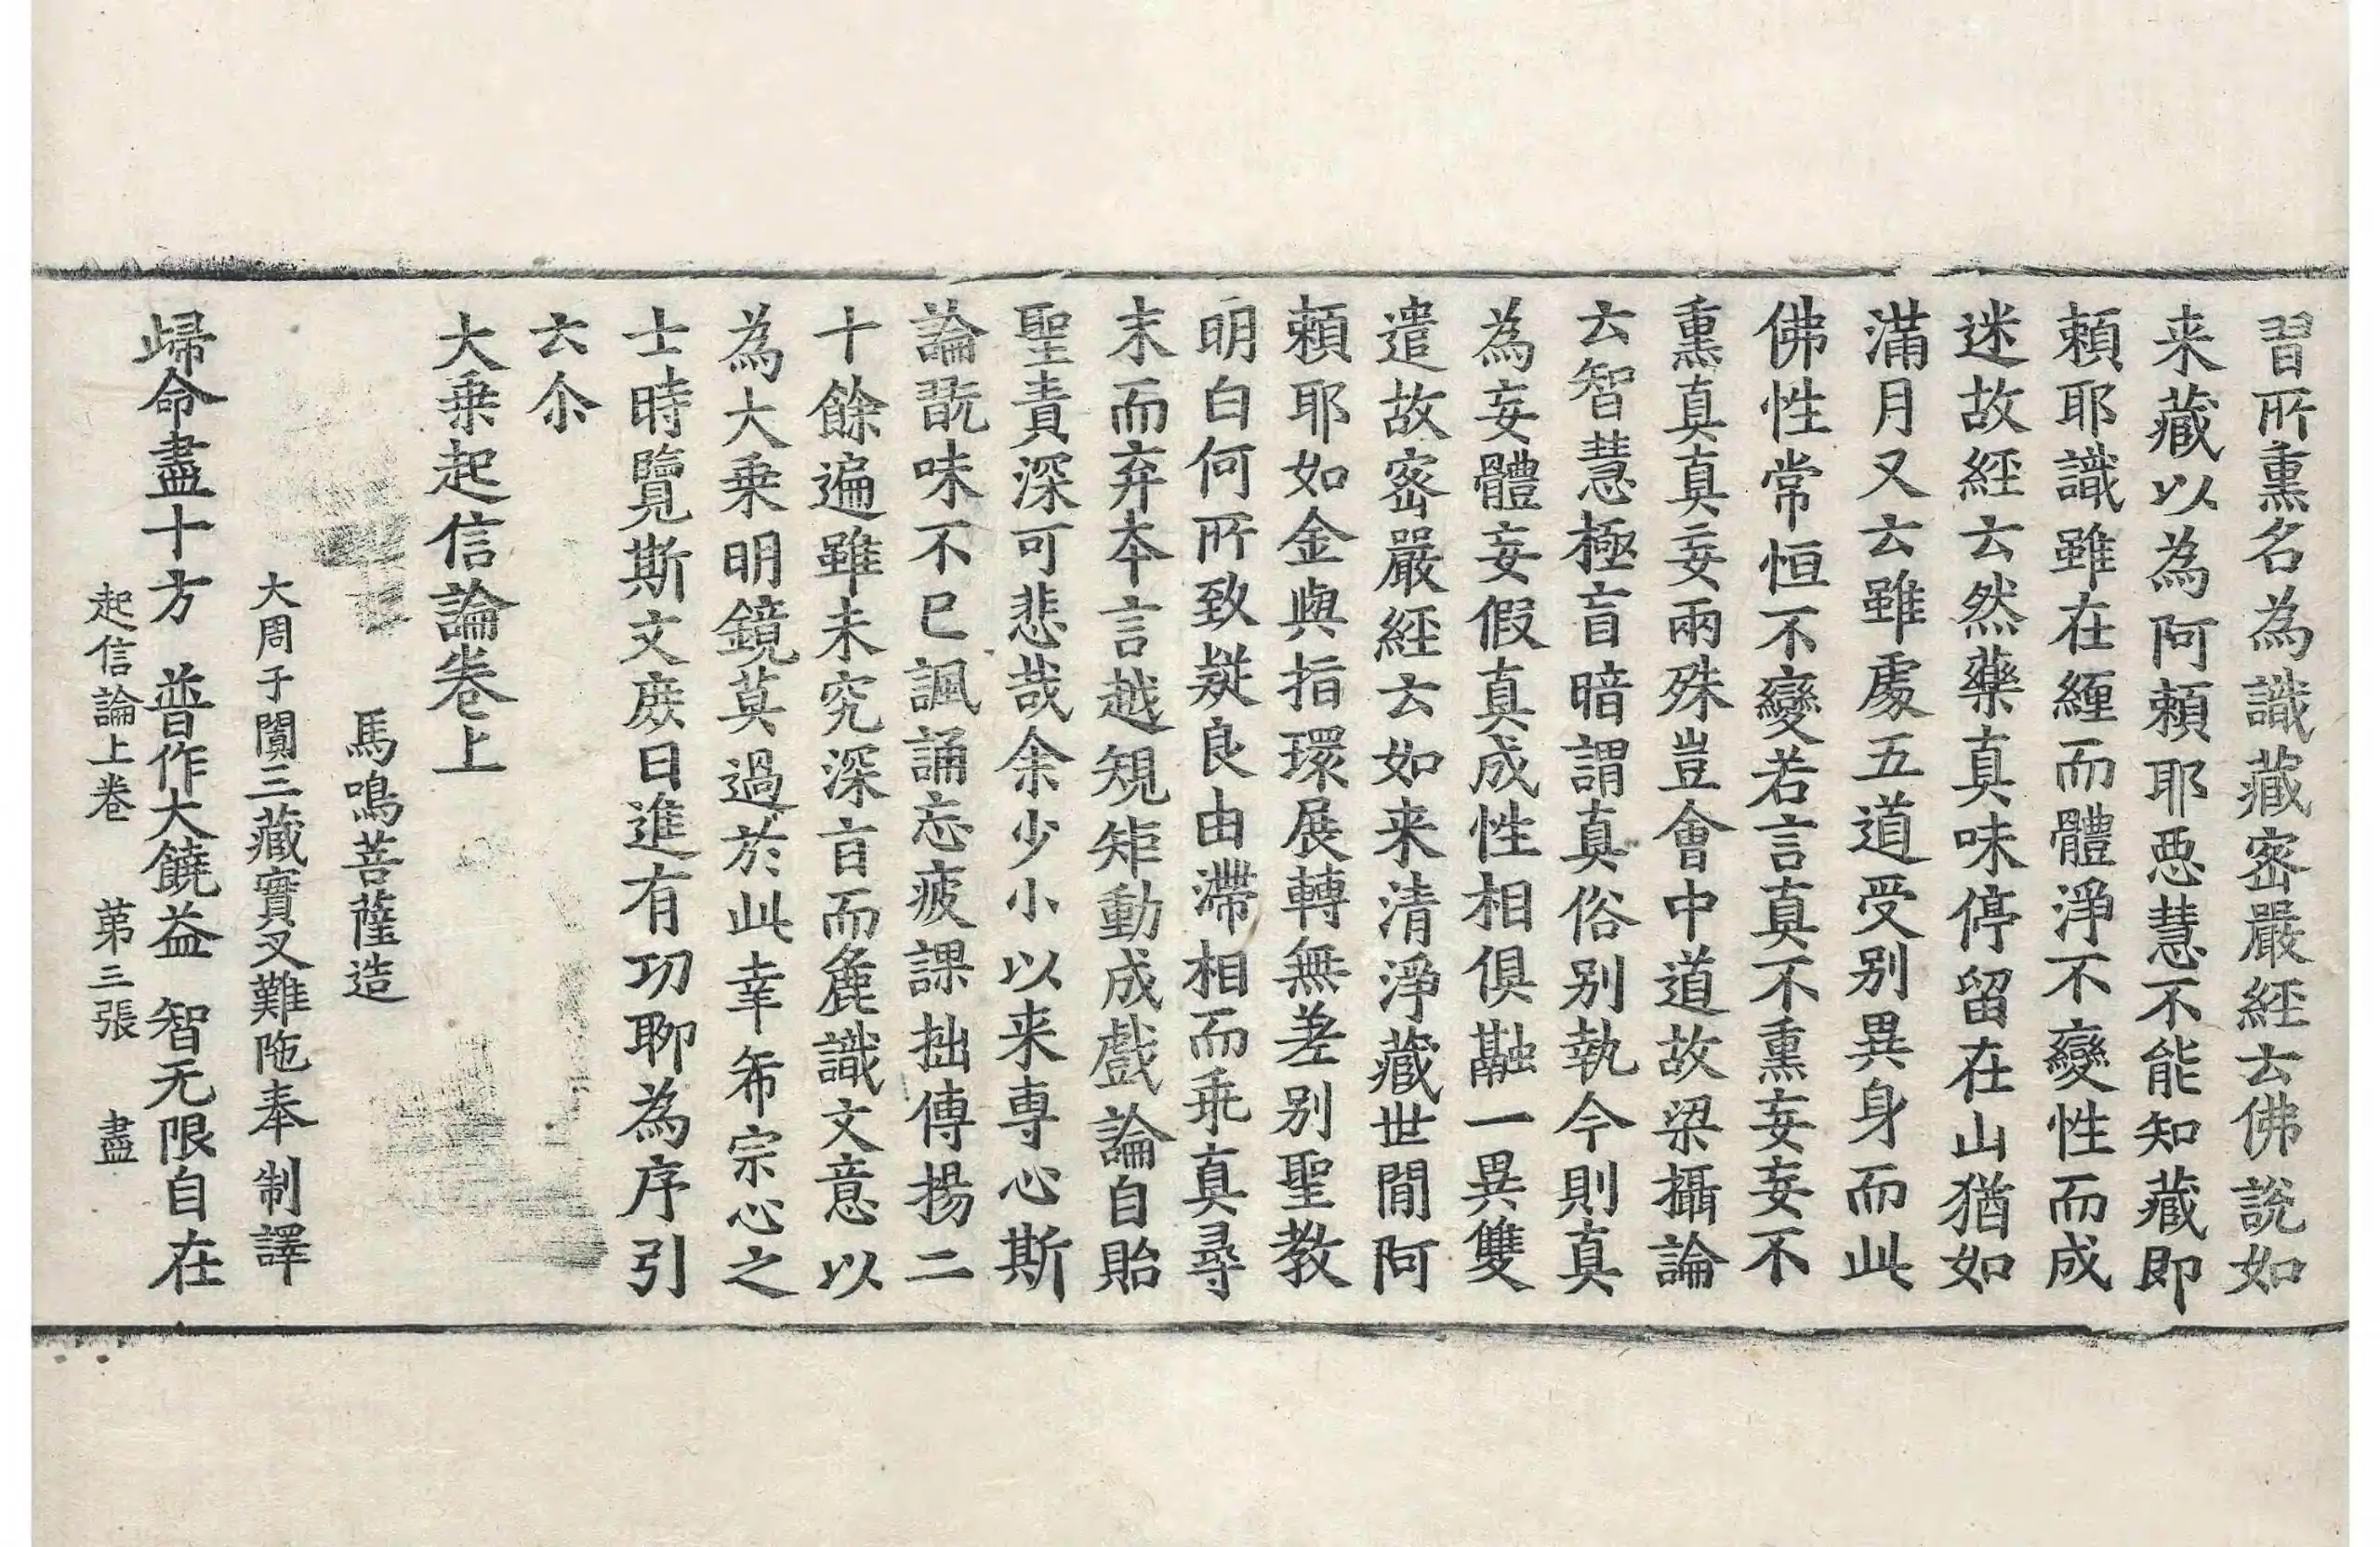 習所熏名為識藏密嚴經云佛說如
来藏以為阿頼耶惡慧不能知藏即
頼耶識雖在纏而體淨不變性而成
迷故經云然藥真味停留在山猶如
滿月又云雖處五道受别異身而此
佛性常恒不變若言真不熏妄妄不
熏真真妄兩殊豈會中道故梁攝論
云智慧極盲暗謂真俗别執今則真
為妄體妄假真成性相俱融一異雙
遣故密嚴經云如来清淨藏世間阿
頼耶如金與指環展轉無差别聖教
明白何所致疑良由滯相而乖真尋
末而弃本言越規矩動成戲論自貽
聖責深可悲哉余少小以来專心斯
論翫味不已諷誦忘疲課拙傳揚二
十餘遍雖未究深旨而麁識文意以
為大乗明鏡莫過於此幸希宗心之
士時覽斯文庻日進有功聊為序引
云尒
大乗起信論卷上
馬鳴菩薩造
大周于闐三藏實叉難陁奉 制譯
歸命盡十方 普作大饒益 智无限自在
起信論上卷 苐三張 盡